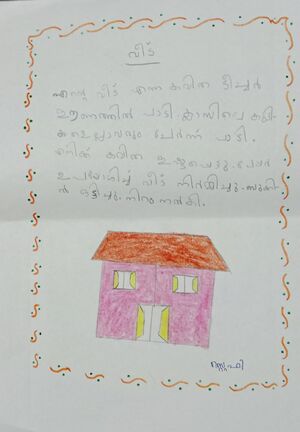 വീട്
എന്റെ വീട് എന്ന കവിത ടീച്ചർ
ഈണത്തിൽ പാടി. ക്ലാസിലെ കുട്ടി
കളെല്ലാവരും ചേർന്ന് പാടി.
എനിക്ക് കവിത ഇഷ്ടപ്പെട്ടു. പേപ്പർ
ഉപയോഗിച്ച് വീട് നിർമ്മിച്ചു.
ൻ ഒട്ടിച്ചു. നിറം നൽകി.